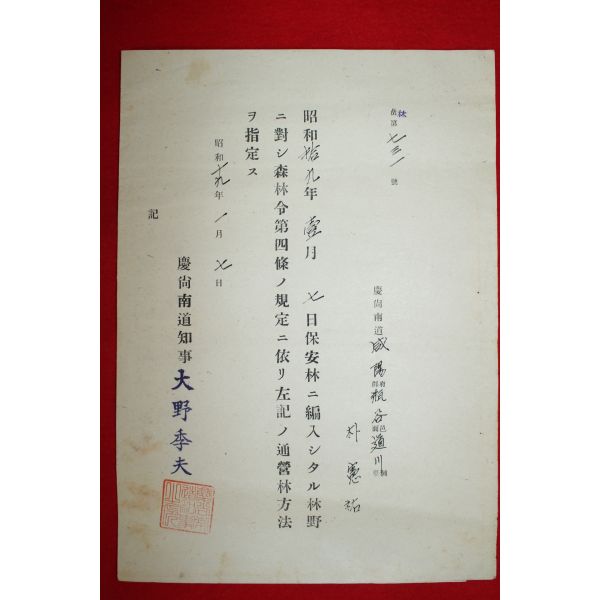 林
第七三一號
慶尙南道咸陽郡府瓶谷面邑道川
朴憲祐
昭和拾九年壹月七日保安林ニ編入シタル林野
ニ對シ森林令第四條ノ規定ニ依リ左記ノ通營林方法
ヲ指定ス
昭和十九年一月七日
慶尙南道知事大野季夫
記